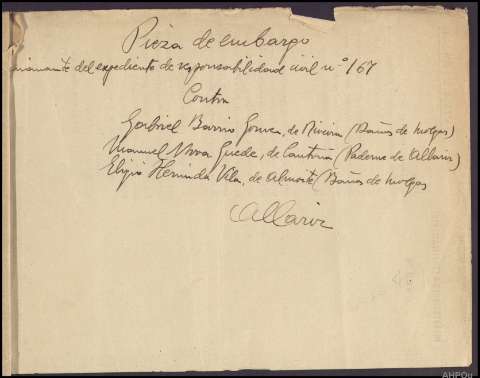 Pieza de embargo
dimanante del expediente de responsabilidad civil nº 167
Contra
Gabriel Barrio Gouvea, de Riveira (Baños de Molgas)
Manuel Nova Guede, de Cantoña (Paderne de Allariz)
Eligio Hermida Vila, de Almoite (Baños de Molgas
Allariz
AHPOu